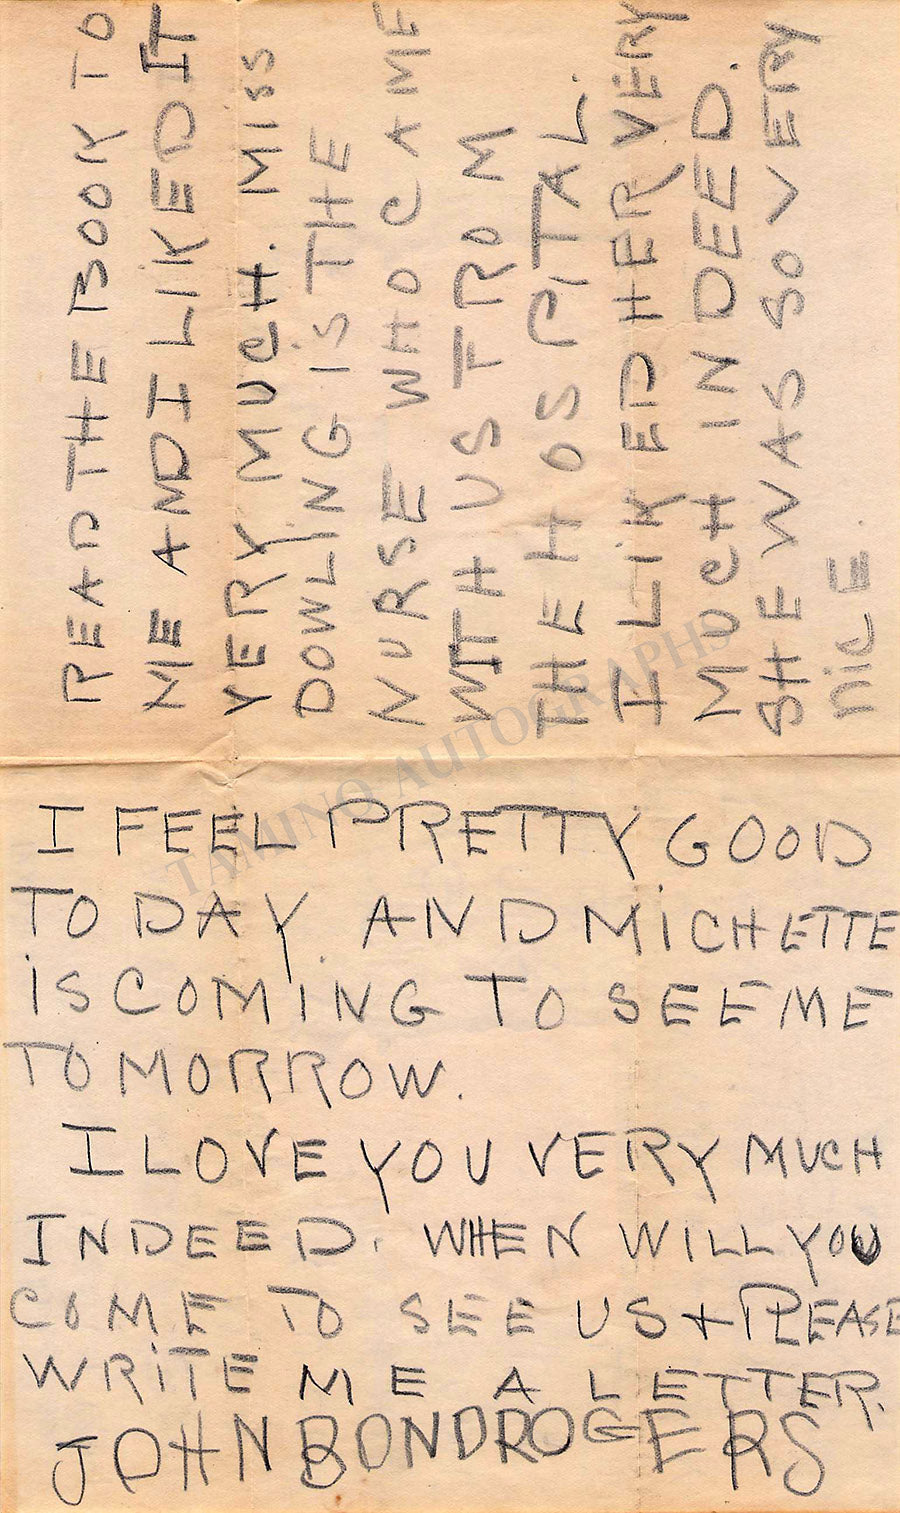 READ THE BOOK TO
ME AND I LIKED IT
YERY MUCH. MISS
DOWLING IS THE
NURSE WHO CAME
WITH US FROM
THE HOSPITAL.
I LIKED HER VERY
MUCH INDEED.
SHE WAS SO VERY
NICE.
I FEEL PRETTY GOOD
TODAY. AND MICHETTE
IS COMING TO SEE ME
TOMORROW.
I LOVE YOU VERY MUCH
INDEED. WHEN WILL YOU
COME TO SEE US + PLEASE
WRITE ME A LETTER.
JOHN BOND ROGERS
TAMINO AUTOGRAPHS